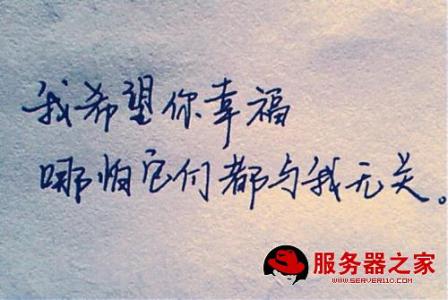 我希望你幸福
哪怕它们都与我无关。
服务器之家
WWW.SERVER110.COM